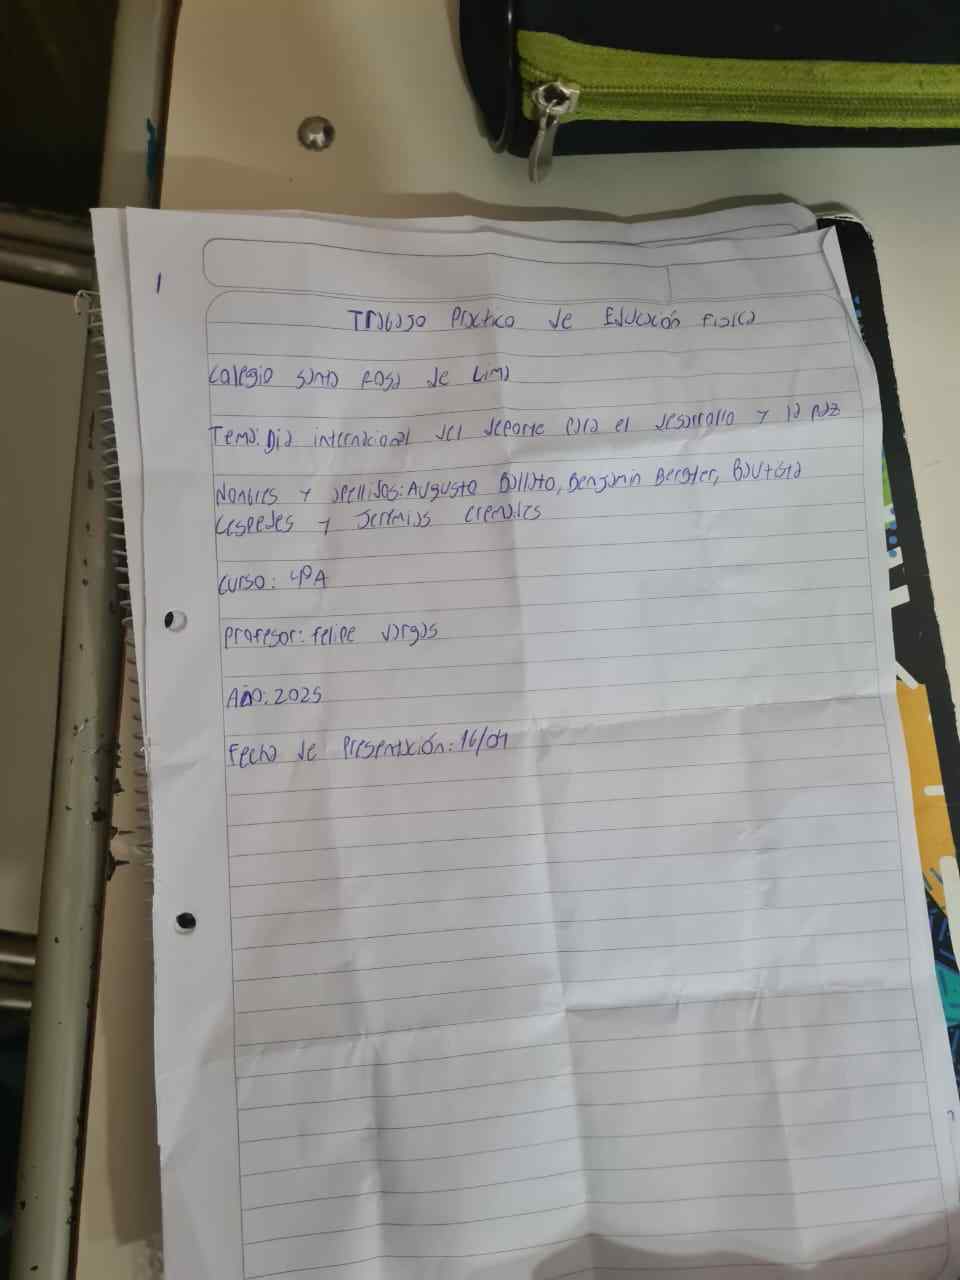 1
Trabajo Practico de Educación Fisica
Colegio Santa Rosa de Lima
Tema: Dia internacional del deporte para el desarrollo y la paz
Nombres y apellidos: Augusto Ballato, Benjamin Bergter, Bautista
Cespedes y Jeremias Cremades
Curso: 4ºA
Profesor: Felipe Vargas
Año: 2025
Fecha de Presentación: 16/04